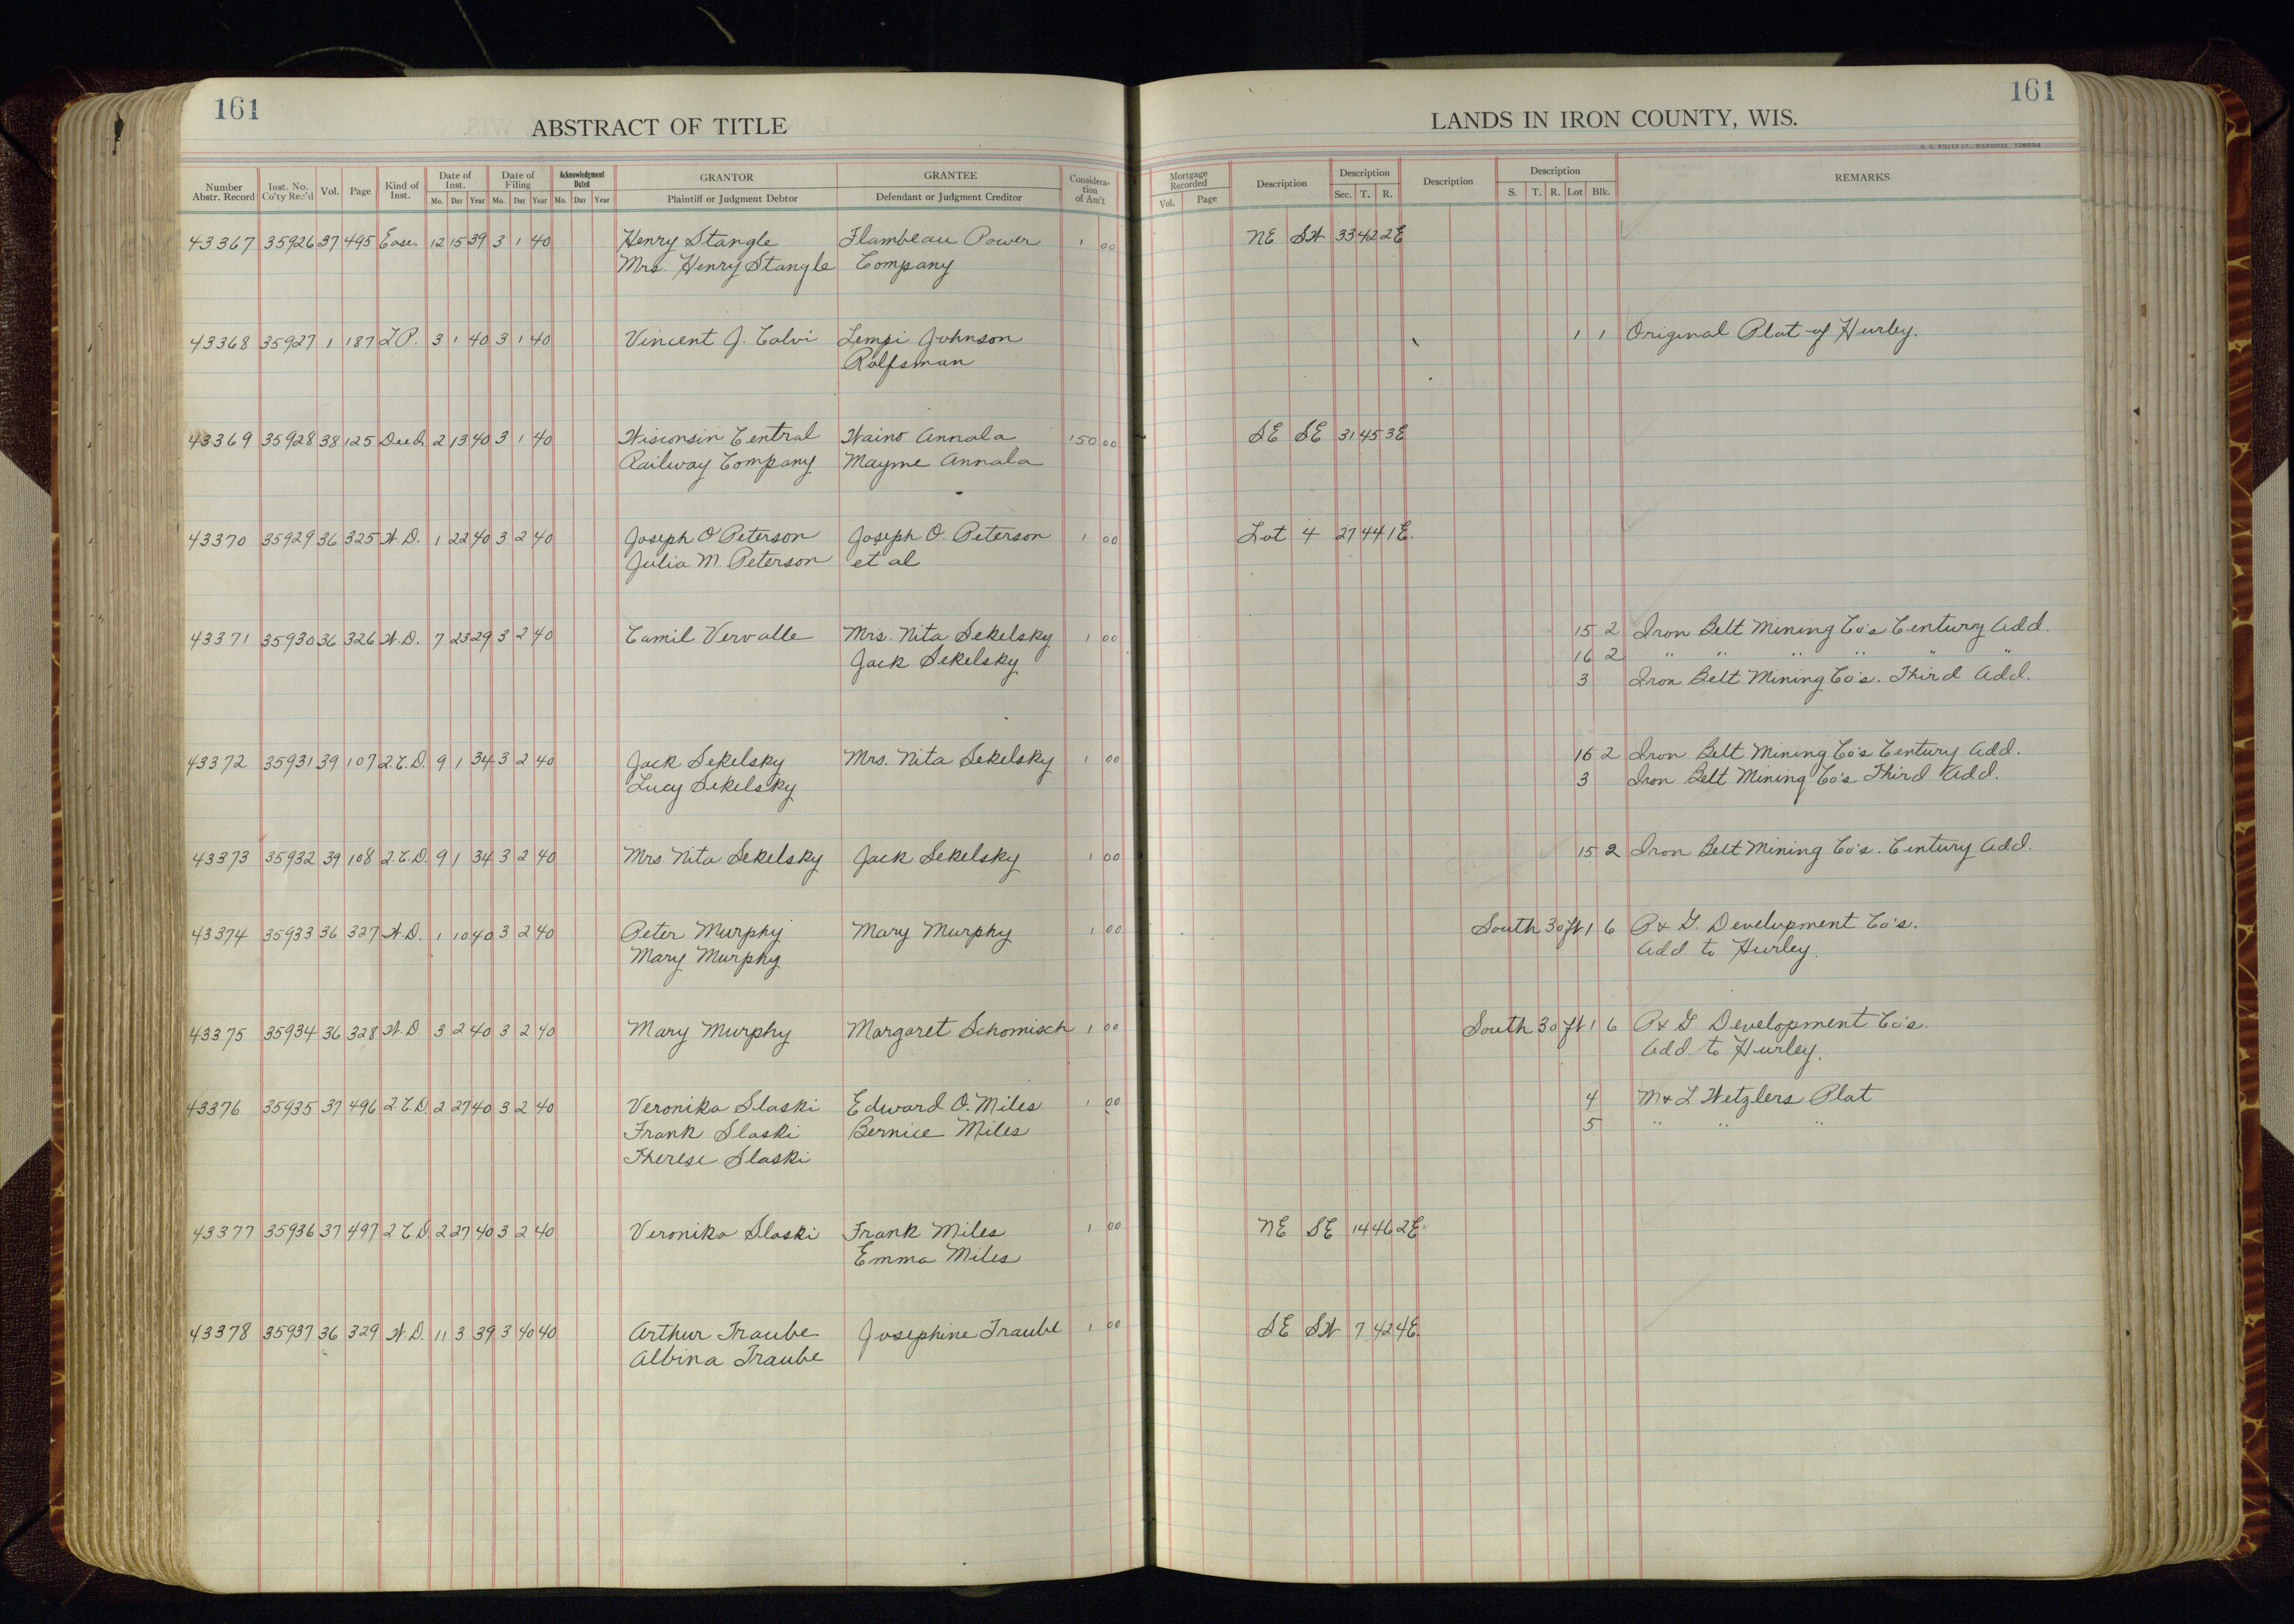 161
161
ABSTRACT OF TITLE
LANDS IN IRON COUNTY, WIS.
Number Abstr. Record Inst. No. Co'ty Rec'd Vol. Page Kind of Inst. Date of Inst. Mo. Day Year Date of Filing Mo. Day Year Acknowledgment Dated Mo. Day Year GRANTOR Plaintiff or Judgment Debtor GRANTEE Defendant or Judgment Creditor Considera-tion of Am't Mortgage Recorded Vol. Page Description Description Sec. T. R. Description Description S. T. R. Lot Blk. REMARKS
43367 35926 37 495 Ease. 12 15 39 3 1 40 Henry Stangle Flambeau Power 1 00 NE SW 33 42 2E
Mrs. Henry Stangle Company
43368 35927 1 187 L P. 3 1 40 3 1 40 Vincent J. Calvi Lempi Johnson 1 1 Original Plat of Hurley.
Rolfsman
43369 35928 38 125 Deed 2 13 40 3 1 40 Wisconsin Central Waino Annala 150 00 SE SE 31 45 3E
Railway Company Mayme Annala
43370 35929 36 325 W.D. 1 22 40 3 2 40 Joseph O Peterson Joseph O. Peterson 1 00 Lot 4 27 44 1E.
Julia M. Peterson et al
43371 35930 36 326 W.D. 7 23 29 3 2 40 Camil Vervalle Mrs. Nita Sekelsky 1 00 15 2 Iron Belt Mining Co's Century Add.
Jack Sekelsky 16 2 " " " " " "
3 Iron Belt Mining Co's. Third Add.
43372 35931 39 107 2.C.D. 9 1 34 3 2 40 Jack Sekelsky Mrs. Nita Sekelsky 1 00 16 2 Iron Belt Mining Co's Century Add.
Lucy Sekelsky 3 Iron Belt Mining Co's Third Add.
43373 35932 39 108 2.C.D. 9 1 34 3 2 40 Mrs Nita Sekelsky Jack Sekelsky 1 00 15 2 Iron Belt Mining Co's. Century Add.
43374 35933 36 327 W.D. 1 10 40 3 2 40 Peter Murphy Mary Murphy 1 00 South 30 ft 1 6 P & G. Development Co's.
Mary Murphy Add. to Hurley.
43375 35934 36 328 W.D 3 2 40 3 2 40 Mary Murphy Margaret Schomisch 1 00 South 30 ft 1 6 P & G Development Co's.
Add to Hurley.
43376 35935 37 496 2.C.D. 2 27 40 3 2 40 Veronika Slaski Edward O. Miles 1 00 4 M & L Wetzlers Plat
Frank Slaski Bernice Miles 5 " " "
Therese Slaski
43377 35936 37 497 2.C.D. 2 27 40 3 2 40 Veronika Slaski Frank Miles 1 00 NE SE 14 46 2E
Emma Miles
43378 35937 36 329 W.D. 11 3 39 3 40 40 Arthur Traube Josephine Traube 1 00 SE SW 7 42 4E
Albina Traube